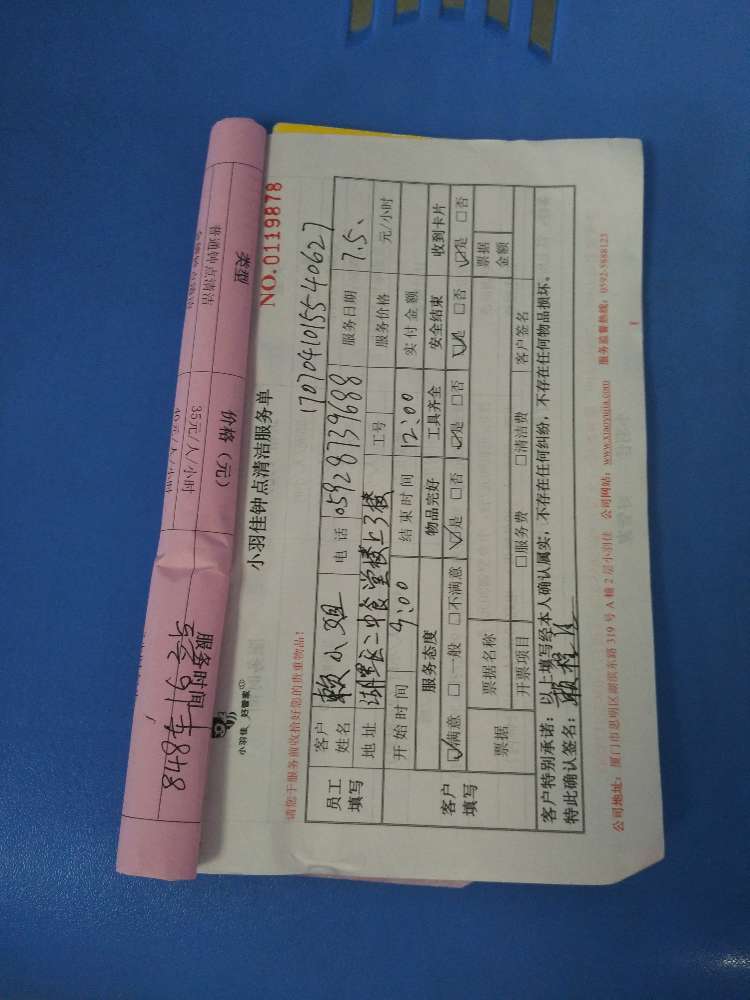 类型 价格（元）
普通钟点清洁 35元/人/小时
服务时间
小羽佳 好管家
小羽佳钟点清洁服务单
NO.0119878
请您于服务前收拾好您的贵重物品！
1707041015540627
员工填写 客户姓名 赖小姐 电话 05928739688 服务日期 7.5.
地址 工号 服务价格 元/小时
开始时间 9:00 结束时间 12:00 实付金额
客户填写 服务态度 物品完好 工具齐全 安全结束 收到卡片
☑满意 □一般 □不满意 ☑是 □否 ☑是 □否 ☑是 □否 ☑是 □否
票据 票据名称 票据金额
开票项目 □服务费 □清洁费 客户签名
客户特别承诺：以上填写经本人确认属实，不存在任何纠纷，不存在任何物品损坏。
特此确认签名：
公司地址：厦门市思明区湖滨东路319号A幢2层小羽佳 公司网站：www.xiaoyujia.com 服务监督热线：0592-5688123